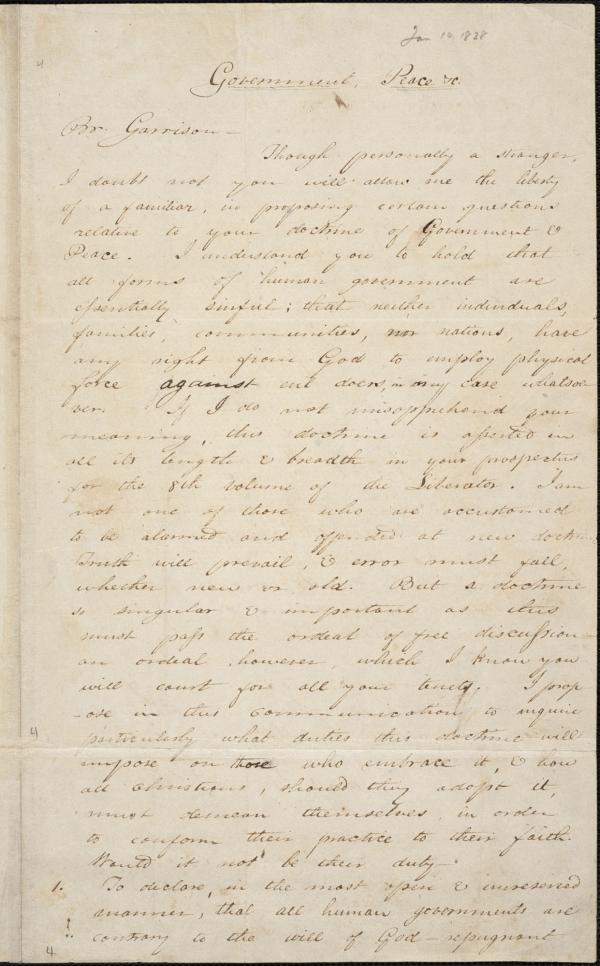 Jan 10. 1838
4
Government, Peace &c.
Br. Garrison—
Though personally a stranger,
I doubt not you will allow me the liberty
of a familiar, in proposing certain questions
relative to your doctrine of Government &
Peace. I understand you to hold that
all forms of human government are
essentially sinful; that neither individuals,
families, communities, nor nations, have
any right from God to employ physical
force against evil doers, in any case whatsoe
ver. If I do not misapprehend your
meaning, this doctrine is asserted in
all its length & breadth in your prospectus
for the 8th volume of the Liberator. I am
not one of those who are accustomed
to be alarmed and offended at new doctrin
Truth will prevail, & error must fall,
whether new or old. But a doctrine
so singular & important as this
must pass the ordeal of free discussion—
an ordeal, however, which I know you
will court for all your tenets. I prop
-ose in this communication to inquire
particularly what duties this doctrine will
impose on those who embrace it, & how
all christians, should they adopt it,
must demean themselves, in order
to conform their practice to their faith.
Would it not be their duty—
1. To declare, in the most open & unreserved
manner, that all human governments are
contrary to the will of God—repugnant
4
4